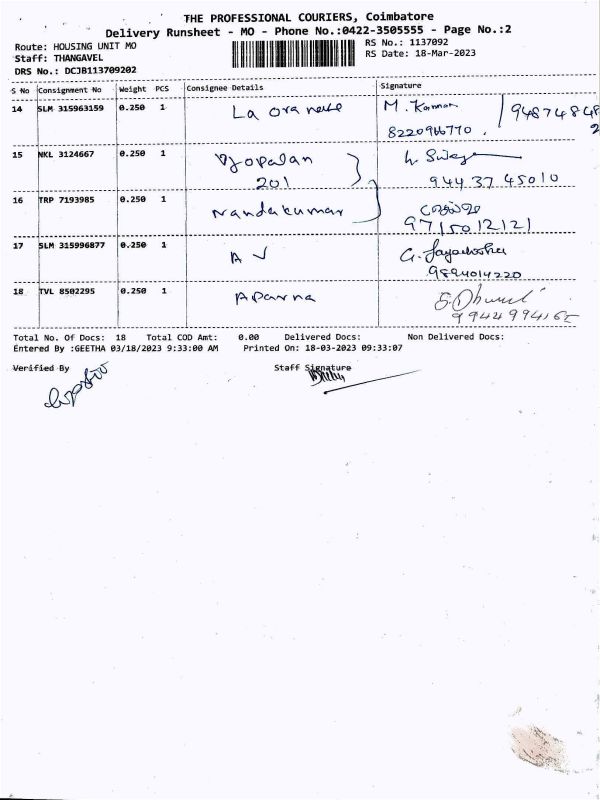 THE PROFESSIONAL COURIERS, Coimbatore
Delivery Runsheet - MO - Phone No.:0422-3505555 - Page No.:2
Route: HOUSING UNIT MO
RS No.: 1137092
Staff: THANGAVEL
RS Date: 18-Mar-2023
DRS No.: DCJB113709202
S No Consignment No Weight PCS Consignee Details Signature
14 SLM 315963159 0.250 1 M. Kannan
8220966770 .
15 NKL 3124667 0.250 1
201 94437 45010
16 TRP 7193985 0.250 1 Nandakumar
9715012121
17 SLM 315996877 0.250 1 A V
9894014220
18 TVL 8502295 0.250 1 Aparna
Total No. Of Docs: 18 Total COD Amt: 0.00 Delivered Docs: Non Delivered Docs:
Entered By :GEETHA 03/18/2023 9:33:00 AM Printed On: 18-03-2023 09:33:07
Verified By Staff Signature